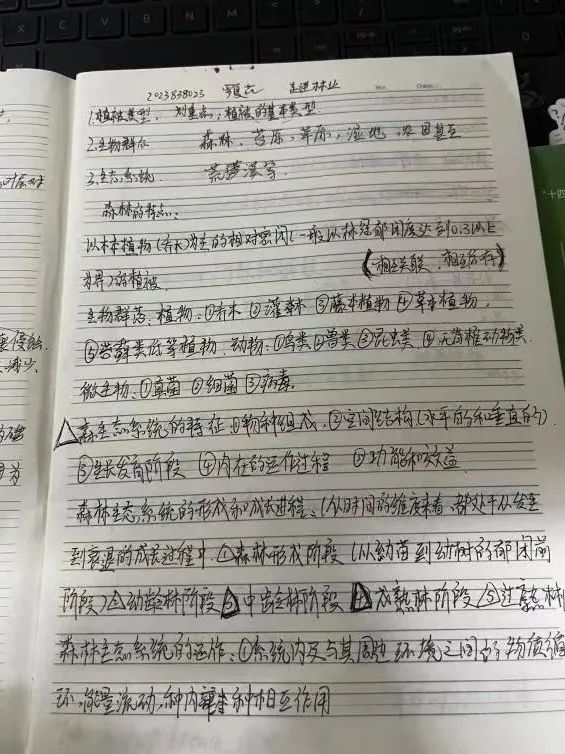 2023838025 走进林业
1.植被类型. 划重点;植被的基本类型
2.生物群落 森林,苔原,草原,湿地,农田甚至
3.生态系统 荒漠漠等.
森林的特点:
以木本植物(乔木)为主的相对密闭(一般以林冠郁闭度达到0.3以上
为界)的植被. (相互关联,相互依存)
生物群落:植物:①乔木 ②灌木 ③藤本植物 ④草本植物,
⑤苔藓类低等植物. 动物:①鸟类②兽类③昆虫类④无脊椎动物类.
微生物:①真菌 ②细菌 ③病毒.
△森生态系统的特征 ①物种组成,②空间结构(水平的和垂直的)
③生长发育阶段 ④内在的运作过程 ⑤功能和效益
森林生态系统的形成和成长进程:(从时间的维度来看,都处于从发生
到衰退的成长过程中.①森林形成阶段(从幼苗到幼树的郁闭前
阶段)②幼龄林阶段③中龄林阶段④成熟林阶段⑤过熟林
森林生态系统的运作:①系统内及与其周边环境之间的物质循
环,能量流动,种内种相互作用